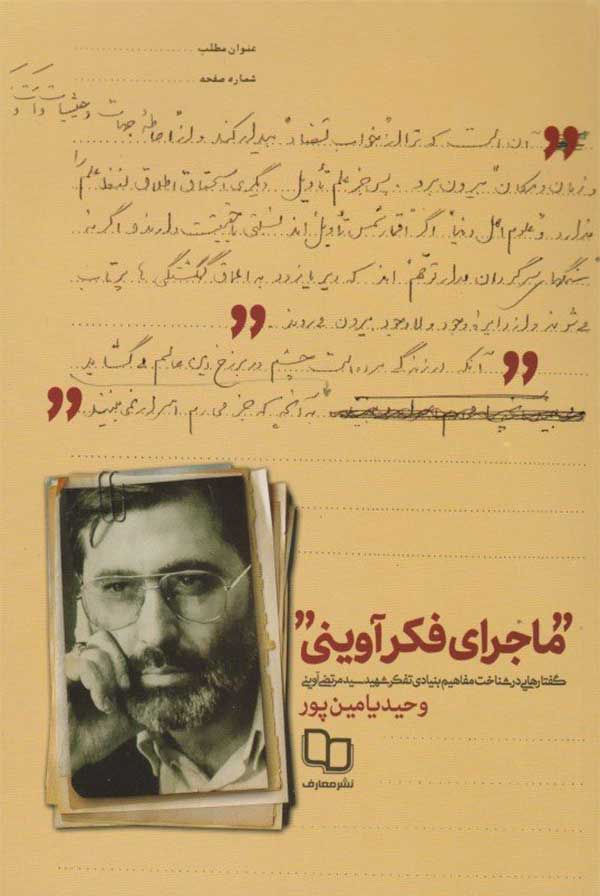 عنوان مطلب
شماره صفحه
آن است که ترا از "خواب تضاد" بیدار کند و از احاطهٔ جهات و حیثیات و
و زمان و مکان بیرون برد. پس جز علم تأویل دیگری استحقاق اطلاق لفظ علم را
ندارد و "علوم اهل دنیا" اگر "اقمار شمس تأویل" اند نسبتی با حقیقت دارند و اگر نه
سنگهای سرگردان مدار توهم اند که دیر یا زود به اعماق گمگشتگی ها پرتاب
می شوند و از دایره وجود و لاوجود بیرون می روند.
آنکه در زندگی مرده است چشم در برزخ این عالم می گشاید
نه آنچه که جز محرم اسرار نمی بیند
"ماجرای فکر آوینی"
گفتارهایی در شناخت مفاهیم بنیادی تفکر شهید سید مرتضی آوینی
وحید یامین پور
نشر معارف